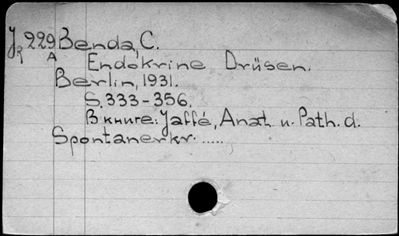 Jʀ 229 Benda, C.
A Endokrine Drüsen.
Berlin, 1931.
S. 333-356.
В книге: Jaffé, Anat. u. Path. d.
Spontanerkr. .....